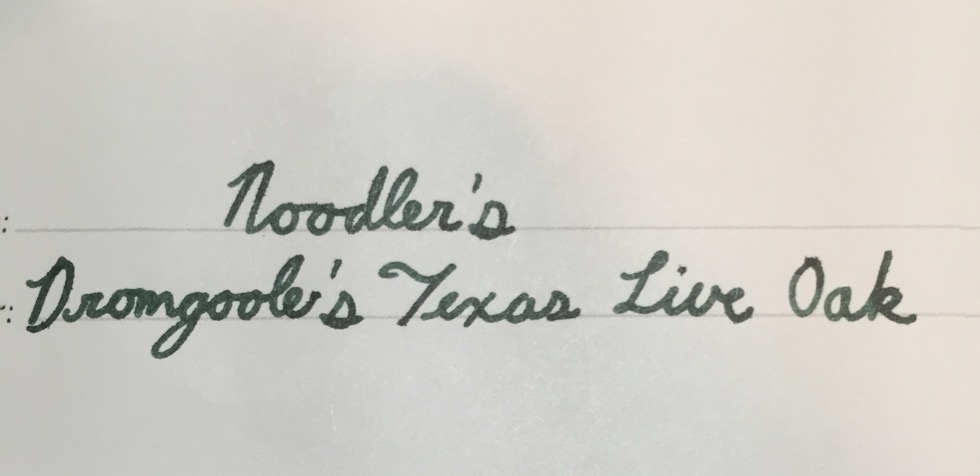 Noodler's
Dromgoole's Texas Live Oak